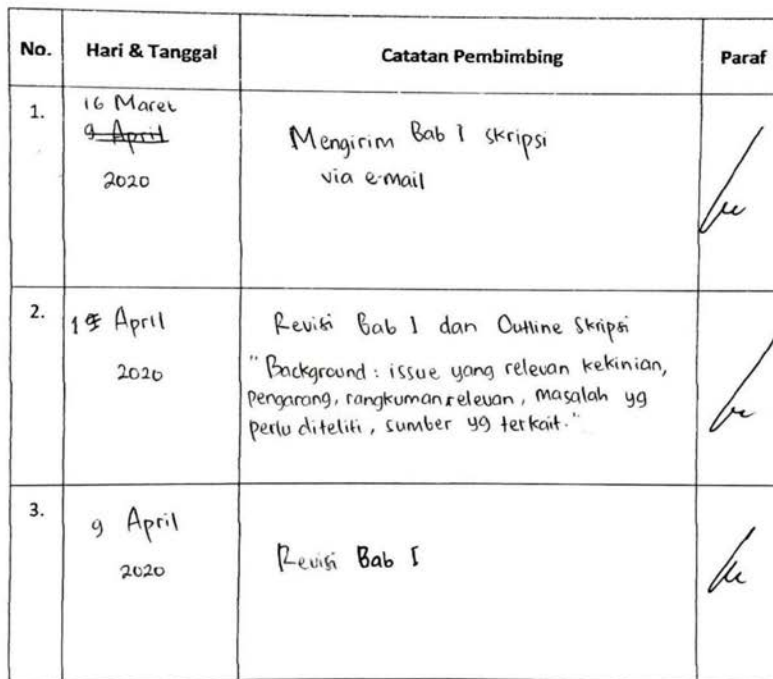 No. Hari & Tanggal Catatan Pembimbing Paraf
1. 16 Maret
9 April
2020
Mengirim Bab I skripsi
via e-mail
2. April
2020
Revisi Bab I dan Outline Skripsi
"Background : issue yang relevan kekinian,
pengarang, rangkuman relevan, masalah yg
perlu diteliti, sumber yg terkait."
3. 9 April
2020
Revisi Bab I